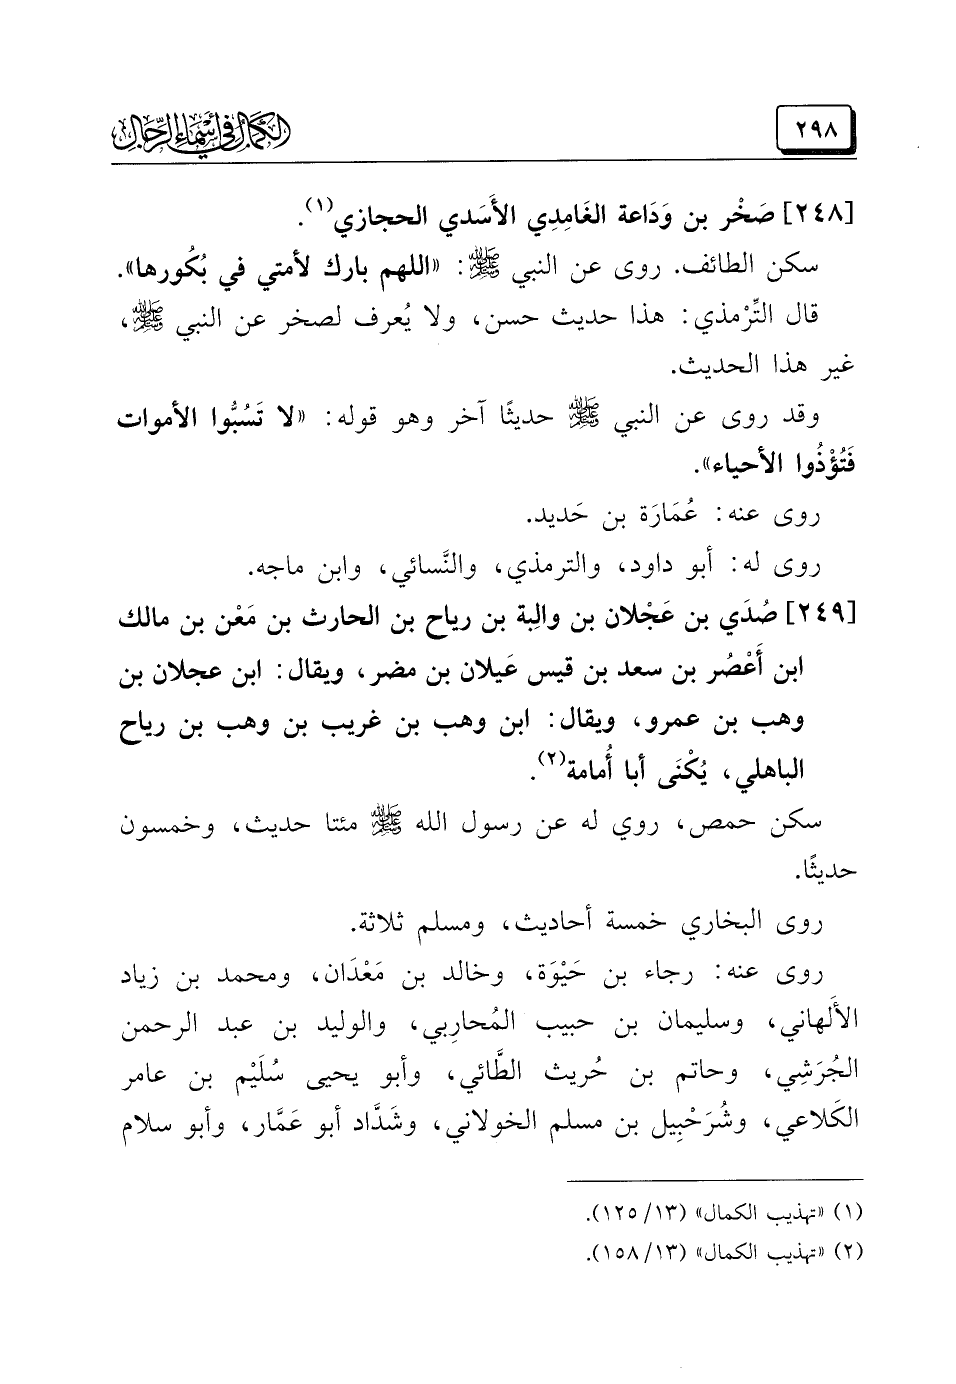 ٢٩٨
الكمال في أسماء الرجال
[٢٤٨] صَخْر بن وَدَاعة الغَامِدِي الأَسَدي الحجازي(١).
سكن الطائف. روى عن النبي ﷺ: «اللهم بارك لأمتي في بُكُورها».
قال التِّرْمذي: هذا حديث حسن، ولا يُعرف لصخر عن النبي ﷺ،
غير هذا الحديث.
وقد روى عن النبي ﷺ حديثًا آخر وهو قوله: «لا تَسُبُّوا الأموات
فَتُؤْذُوا الأحياء».
روى عنه: عُمَارَة بن حَديد.
روى له: أبو داود، والترمذي، والنَّسائي، وابن ماجه.
[٢٤٩] صُدَي بن عَجْلان بن والِبة بن رياح بن الحارث بن مَعْن بن مالك
ابن أَعْصُر بن سعد بن قيس عَيلان بن مضر، ويقال: ابن عجلان بن
وهب بن عمرو، ويقال: ابن وهب بن غريب بن وهب بن رياح
الباهلي، يُكْنَى أبا أُمامة(٢).
سكن حمص، روي له عن رسول الله ﷺ مئتا حديث، وخمسون
حديثًا.
روى البخاري خمسة أحاديث، ومسلم ثلاثة.
روى عنه: رجاء بن حَيْوَة، وخالد بن مَعْدَان، ومحمد بن زياد
الأَلهاني، وسليمان بن حبيب المُحاربي، والوليد بن عبد الرحمن
الجُرَشِي، وحاتم بن حُريث الطَّائي، وأبو يحيى سُلَيْم بن عامر
الكَلاعي، وشُرَحْبِيل بن مسلم الخولاني، وشَدَّاد أبو عَمَّار، وأبو سلام
(١) «تهذيب الكمال» (١٣/ ١٢٥).
(٢) «تهذيب الكمال» (١٣/ ١٥٨).